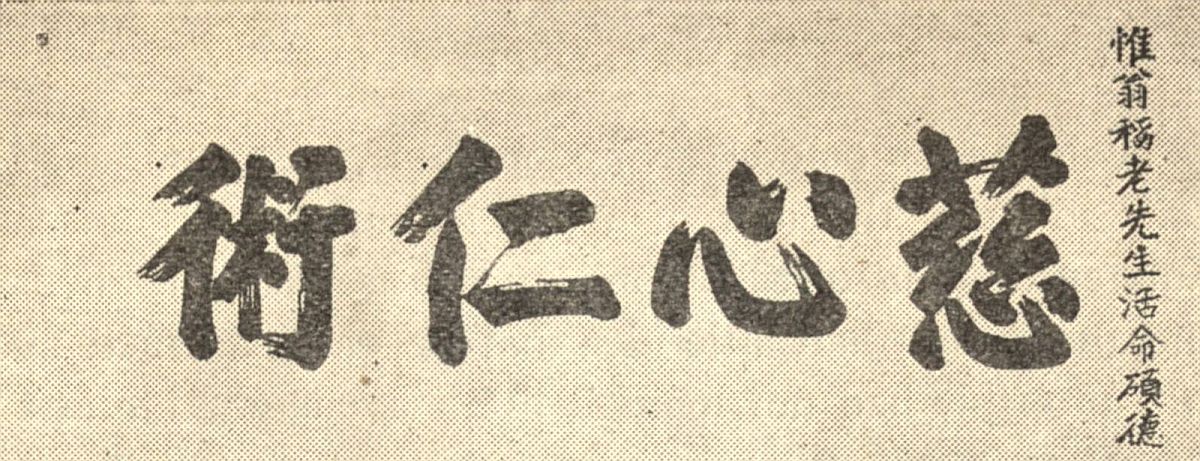 惟翁稱老先生活命碩德
慈心仁術